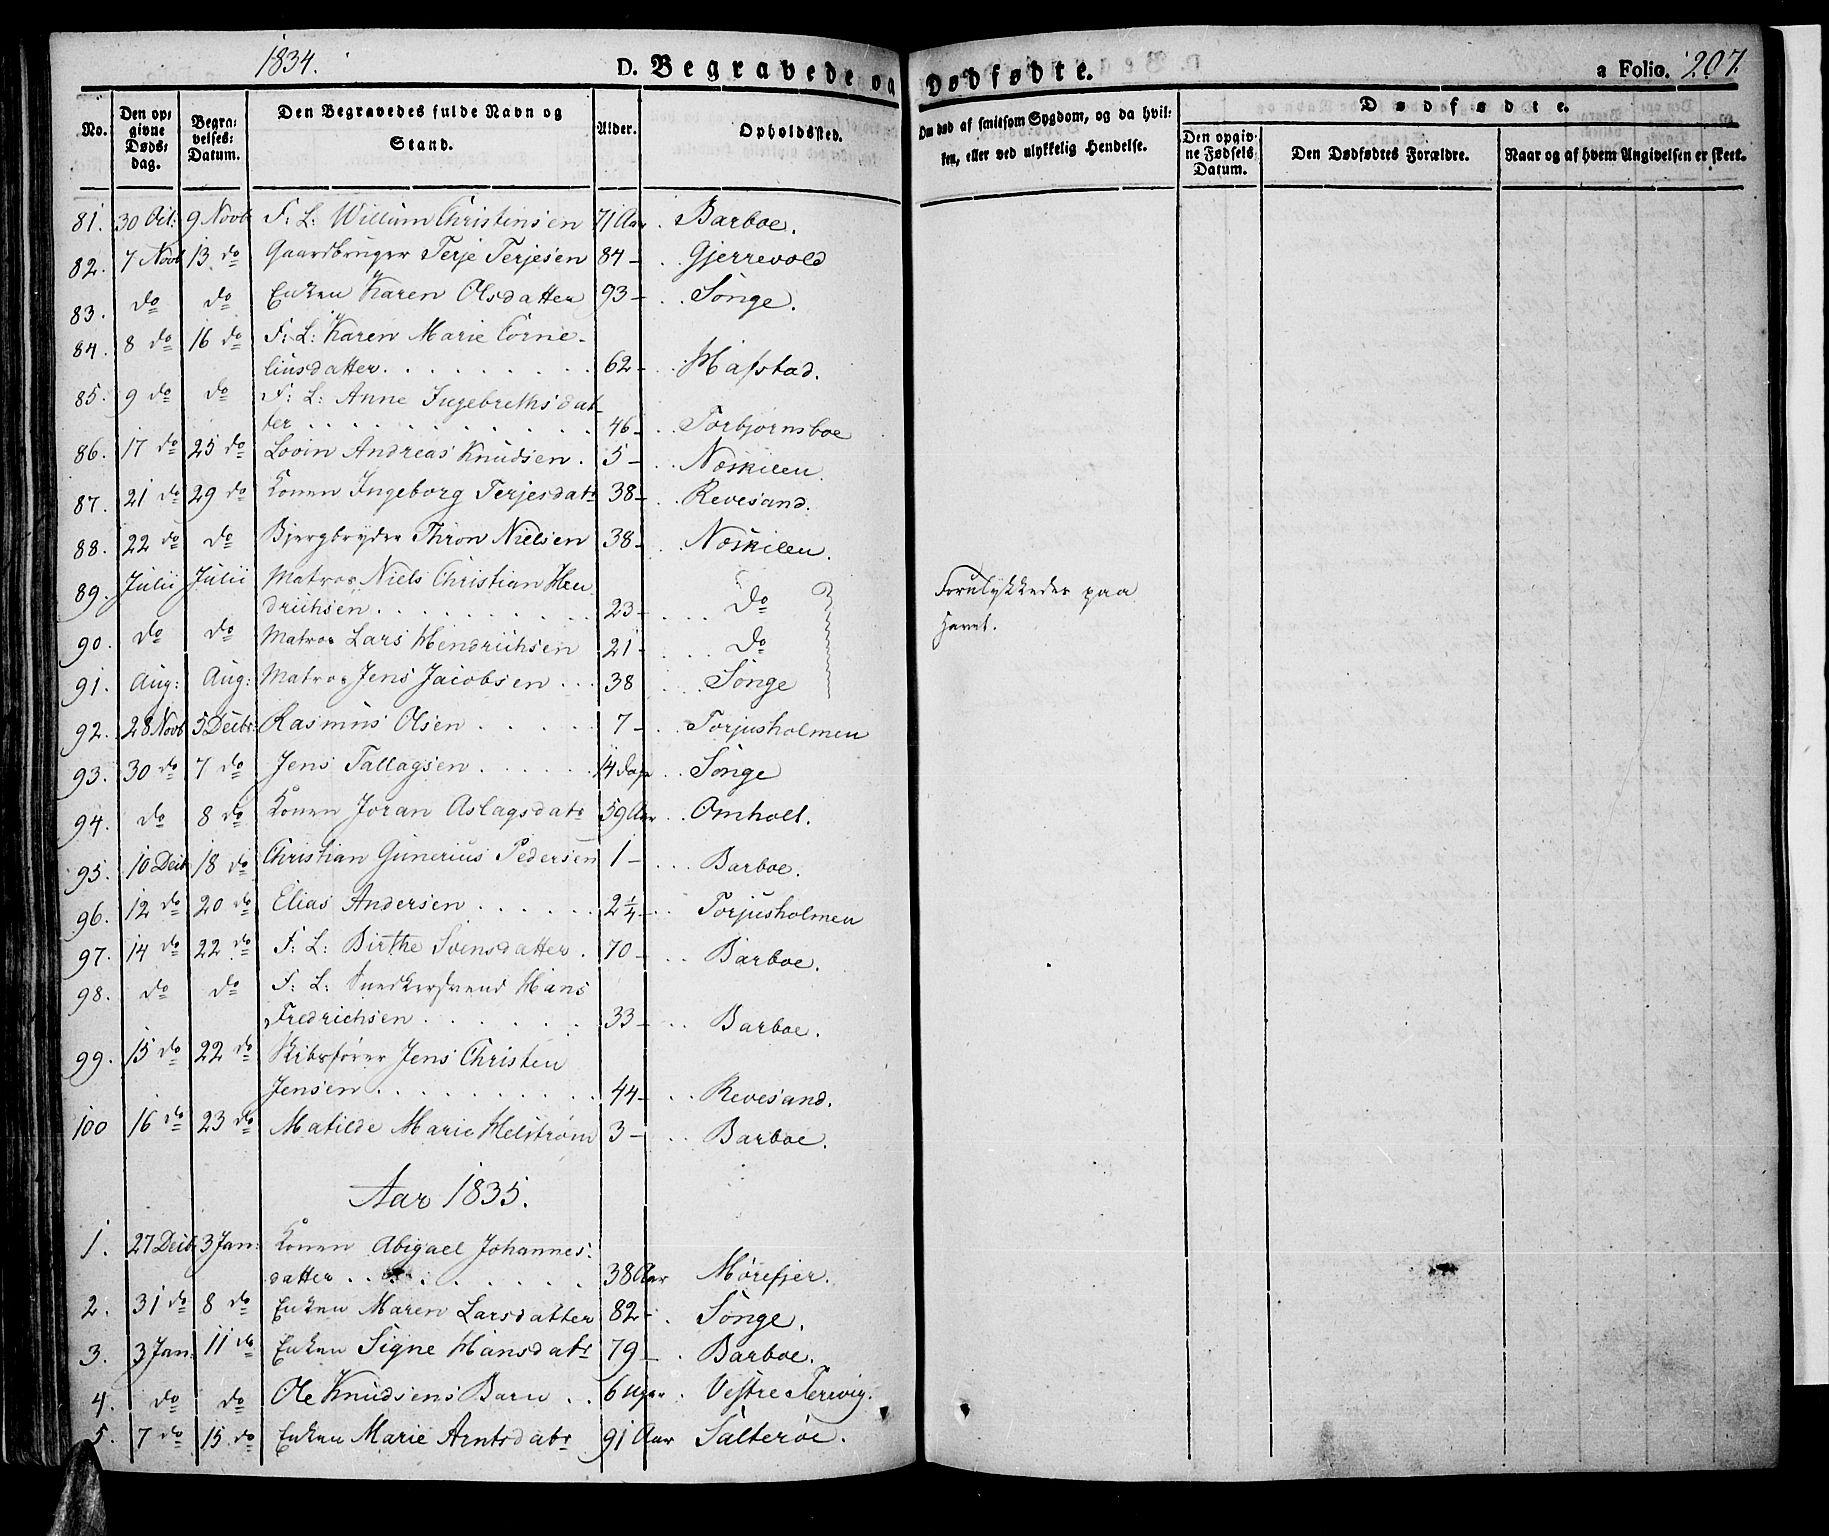 1834.
D. Begravede og Dødfødte.
a Folio. 207.
No.
Den opgivne Dødsdag.
Begravelses-Datum.
Den Begravedes fulde Navn og Stand.
Alder.
Opholdssted.
Om død af smitsom Sygdom, og da hvilken, eller ved ulykkelig Hendelse.
Dødfødte.
Den opgivne Fødsels Datum.
Den Dødfødtes Forældre.
Naar og af hvem Angivelsen er skeet.
81. 30 Oct: 9 Novb F: L: Willum Christinsen 71 Aar . Barboe.
82. 7 Novb 13 do Gaardbruger Terje Terjesen 84 - . . Gjerrevold
83. do do Enken Karen Olsdatter 93 - . . Songe.
84. 8 do 16 do F: L: Karen Marie Corne-
liusdatter . . . . . . . . 62 - . . Hafstad.
85. 9 do do F: L: Anne Ingebrethsdat-
ter . . . . . . . . . . 46 - . . Torbjørnsboe
86. 17 do 25 do Lovin Andreas Knudsen . 5 - . . Neskilen.
87. 21 do 29 do Konen Ingeborg Terjesdatr 38 - . . Revesand.
88. 22 do do Bjergbryder Thron Nielsen 38 - . . Neskilen.
89. Julii Julii Matros Niels Christian Hen-
drichsen . . . . . . . . 23 - . . . do
Forulykkedes paa
Havet.
90. do do Matros Lars Hendrichsen 21 - . . . do
91. Aug: Aug: Matros Jens Jacobsen . . . 38 . . . Songe
92. 28 Novb 5 Decbr Rasmus Olsen . . . . . 7 - . . Torjusholmen
93. 30 do 7 do Jens Tallagsen . . . . . 14 Dage . . Songe
94. do 8 do Konen Joran Aslagsdatr 59 Aar . . Omholt.
95. 10 Decb 18 do Christian Gunerius Pedersen 1 - . . . Barboe.
96. 12 do 20 do Elias Andersen . . . . . 2 1/4 - . . Torjusholmen
97. 14 do 22 do F: L: Birthe Svensdatter . 70 - . . Barboe.
98. do do F: L: Snedkersvend Hans
Fredrichsen . . . . . . 33 - . . Barboe.
99. 15 do 22 do Skibsfører Jens Christen
Jensen . . . . . . . . . 44 - . . Revesand.
100 16 do 23 do Matilde Marie Helstrøm 3 - . . Barboe.
Aar 1835.
1. 27 Decb 3 Jan: Konen Abigael Johannes-
datter . . . . . . . . 38 Aar Mørefjer.
2. 31 do 8 do Enken Maren Larsdatter 82 - . Songe.
3. 3 Jan: 11 do Enken Signe Hansdatr 79 - . Barboe.
4. do do Ole Knudsens Barn . . 6 Uger . Vestre Terevig.
5. 7 do 15 do Enken Marie Arntsdatr 91 Aar . Salterøe.